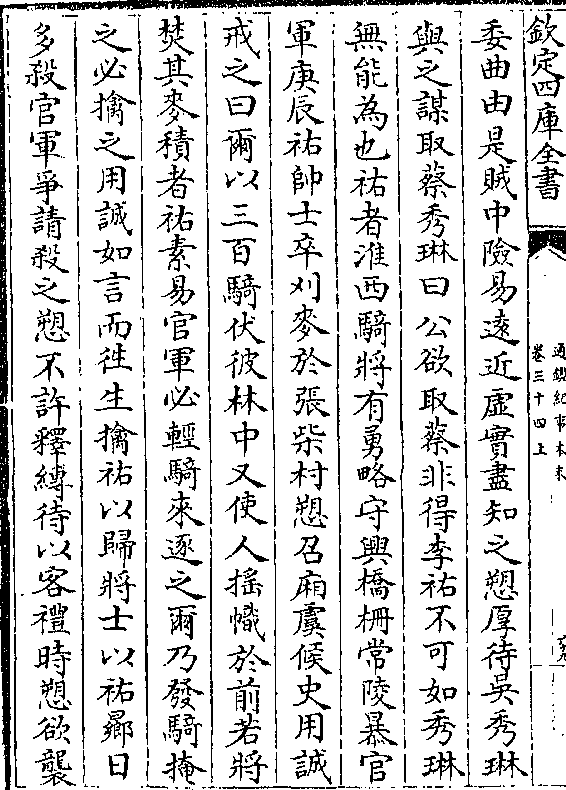 欽定四庫全書
通鑑紀事本末
卷三十四上
委曲由是賊中險易遠近虛實盡知之愬厚待吳秀琳
與之謀取蔡秀琳曰公欲取蔡非得李祐不可如秀琳
無能為也祐者淮西騎將有勇略守興橋柵常陵暴官
軍庚辰祐帥士卒刈麥於張柴村愬召廂虞候史用誠
戒之曰爾以三百騎伏彼林中又使人搖幟於前若將
焚其麥積者祐素易官軍必輕騎來逐之爾乃發騎掩
之必擒之用誠如言而徃生擒祐以歸將士以祐曏日
多殺官軍爭請殺之愬不許釋縛待以客禮時愬欲襲